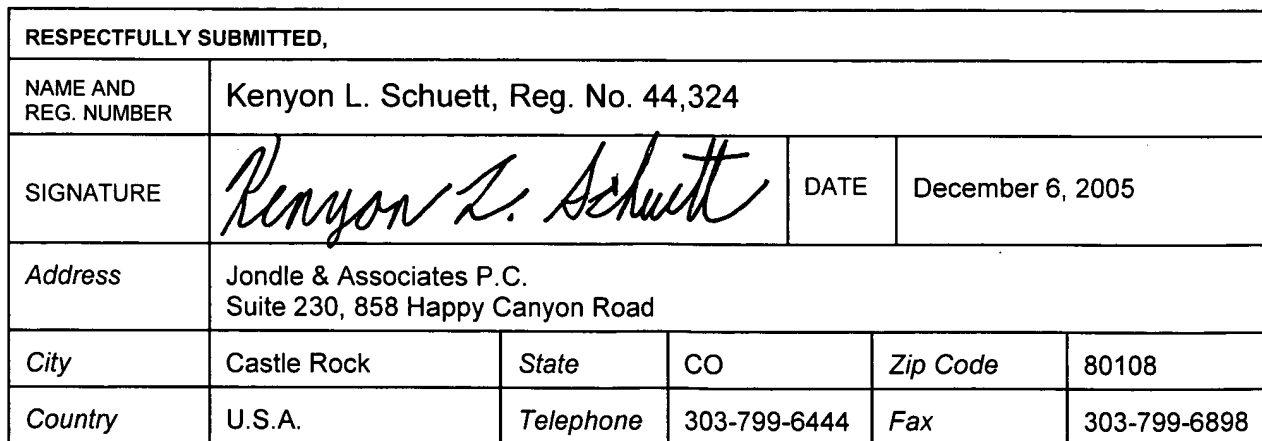 RESPECTFULLY SUBMITTED,
NAME AND
REG. NUMBER
Kenyon L. Schuett, Reg. No. 44,324
SIGNATURE Kenyon L. Schuett DATE December 6, 2005
Address Jondle & Associates P.C.
Suite 230, 858 Happy Canyon Road
City Castle Rock State CO Zip Code 80108
Country U.S.A. Telephone 303-799-6444 Fax 303-799-6898